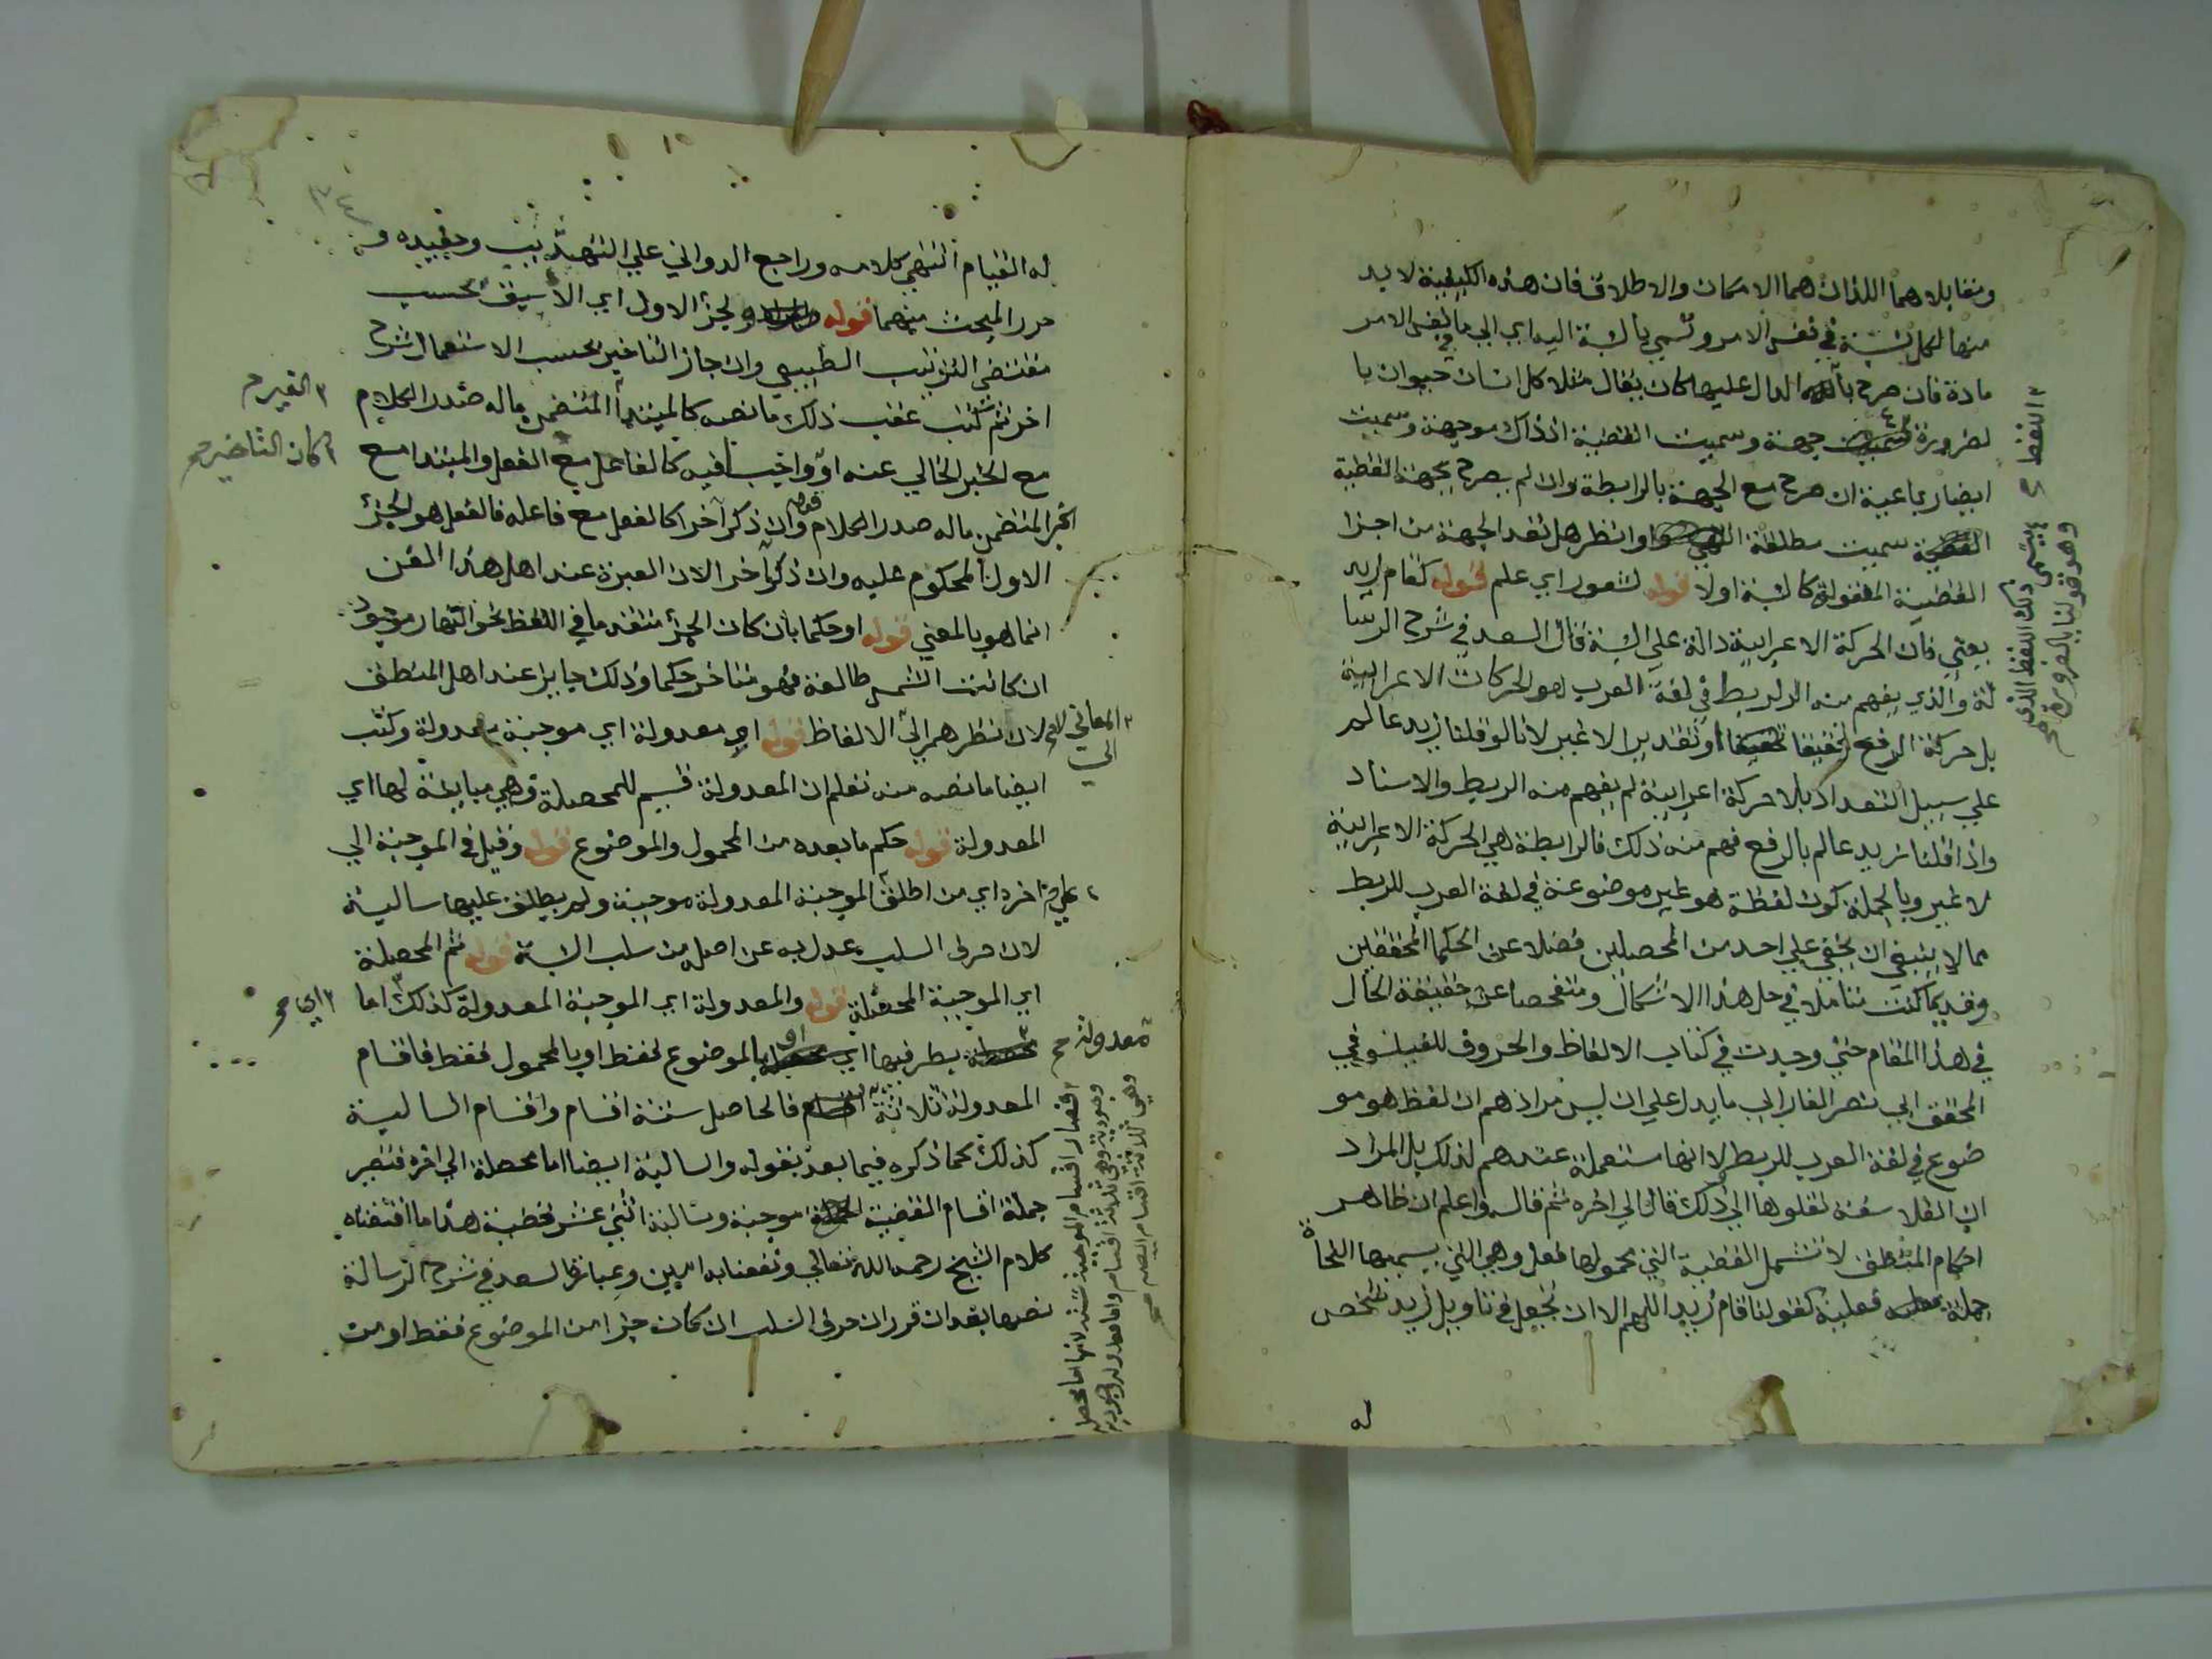 ومقابلاهما اللذان هما الامكان والاطلاق فان هذه الكيفية لابد
منها لكل نسبة في نفس الامر وتسمي بالنسبة اليه اي الي ما في نفس الامر
مادة فان صرح بالدال عليها كان يقال مثلا كل انسان حيوان با
لضرورة جهة وسميت القضية اذ ذاك موجهة وسميت
ايضا رباعية ان صرح مع الجهة بالرابطة وان لم يصرح بجهة القضية
سميت مطلقة وانظر هل تعد الجهة من اجزا
القضية المعقولة كالنسبة اولا قوله لشعور اي علم قوله كقام زيد
يعني فان الحركة الاعرابية دالة علي النسبة قال السعد في شرح الرسا
لة والذي يفهم منه الربط في لغة العرب هو الحركات الاعرابية
بل حركة الرفع تحقيقا او تقديرا لا غير لانا لو قلنا زيد عالم
علي سبيل التعداد بلا حركة اعرابية لم يفهم منه الربط والاسناد
واذا قلنا زيد عالم بالرفع فهم منه ذلك فالرابطة هي الحركة الاعرابية
لا غير وبالجملة كون لفظة هو غير موضوعة في لغة العرب للربط
مما لا ينبغي ان يخفي علي احد من المحصلين فضلا عن الحكما المحققين
وقديما كنت متاملا في حل هذا الاشكال ومتفحصا عن حقيقة الحال
في هذا المقام حتي وجدت في كتاب الالفاظ والحروف للفيلسوف
المحقق ابي نصر الفارابي ما يدل علي ان ليس مرادهم ان لفظ هو مو
ضوع في لغة العرب للربط لا انها مستعملة عندهم لذلك بل المراد
ان الفلاسفة نقلوها الي ذلك قال الي اخره ثم قال واعلم ان ظاهر
احكام المنطق لا تشمل القضية التي محمولها فعل وهي التي يسميها النحاة
جملة فعلية كقولنا قام زيد اللهم الا ان تجعل في تاويل زيد شخص
له
اللفظ
يسمي ذلك اللفظ الذي
وهو قولنا بالضرورة
٣٤
له القيام انتهي كلامه وراجع الدواني علي التهذيب وحفيده و
حرر المبحث منهما قوله والجزء الاول اي الاسبق بحسب
مقتضي الترتيب الطبيعي وان جاز التاخير بحسب الاستعمال شرح
اخر ثم كتب عقب ذلك ما نصه كالمبتدأ المتضمن ماله صدر الكلام
مع الخبر الخالي عنه او واجبا فيه كالفاعل مع الفعل والمبتدا مع
الخبر المتضمن ماله صدر الكلام وان ذكر آخرا كالفعل مع فاعله فالفعل هو الجزء
الاول المحكوم عليه وان ذكر آخر الان العبرة عند اهل هذا الفن
انما هو بالمعني قوله او حكما بان كان الجزء متقدما في اللفظ نحو النهار موجود
ان كانت الشمس طالعة فهو متاخر حكما وذلك جايز عند اهل المنطق
لان نظرهم الي الالفاظ قوله او معدولة اي موجبة معدولة وكتب
ايضا ما نصه منه تعلم ان المعدولة قسيم للمحصلة وهي مباينة لها اي
المعدولة قوله حكم ما بعده من المحمول والموضوع قوله وقيل في الموجبة الي
اخره اي من اطلق الموجبة المعدولة موجبة ولم يطلق عليها سالبة
لان حرف السلب عدل به عن اصله من سلب النسبة قوله ثم المحصلة
اي الموجبة المحصلة قوله والمعدولة اي الموجبة المعدولة كذلك اما
بطرفيها او بالموضوع فقط او بالمحمول فقط فاقسام
المعدولة ثلاثة فالحاصل ستة اقسام واقسام السالبة
كذلك كما ذكره فيما بعد بقوله والسالبة ايضا اما محصلة الي اخره فتصير
جملة اقسام القضية موجبة وسالبة اثني عشر قضية هذا ما اقتضاه
كلام الشيخ رحمه الله تعالي ونفعنا به امين وعبارة السعد في شرح الرسالة
نصها بعد ان قرر ان حرف السلب ان كان جزا من الموضوع فقط او من
كان التاخير
المعاني لا
الي
اي
معدولة
فصار اقسام الموجبة ستة لانها اما محصلة
وهي ثلاثة اقسام